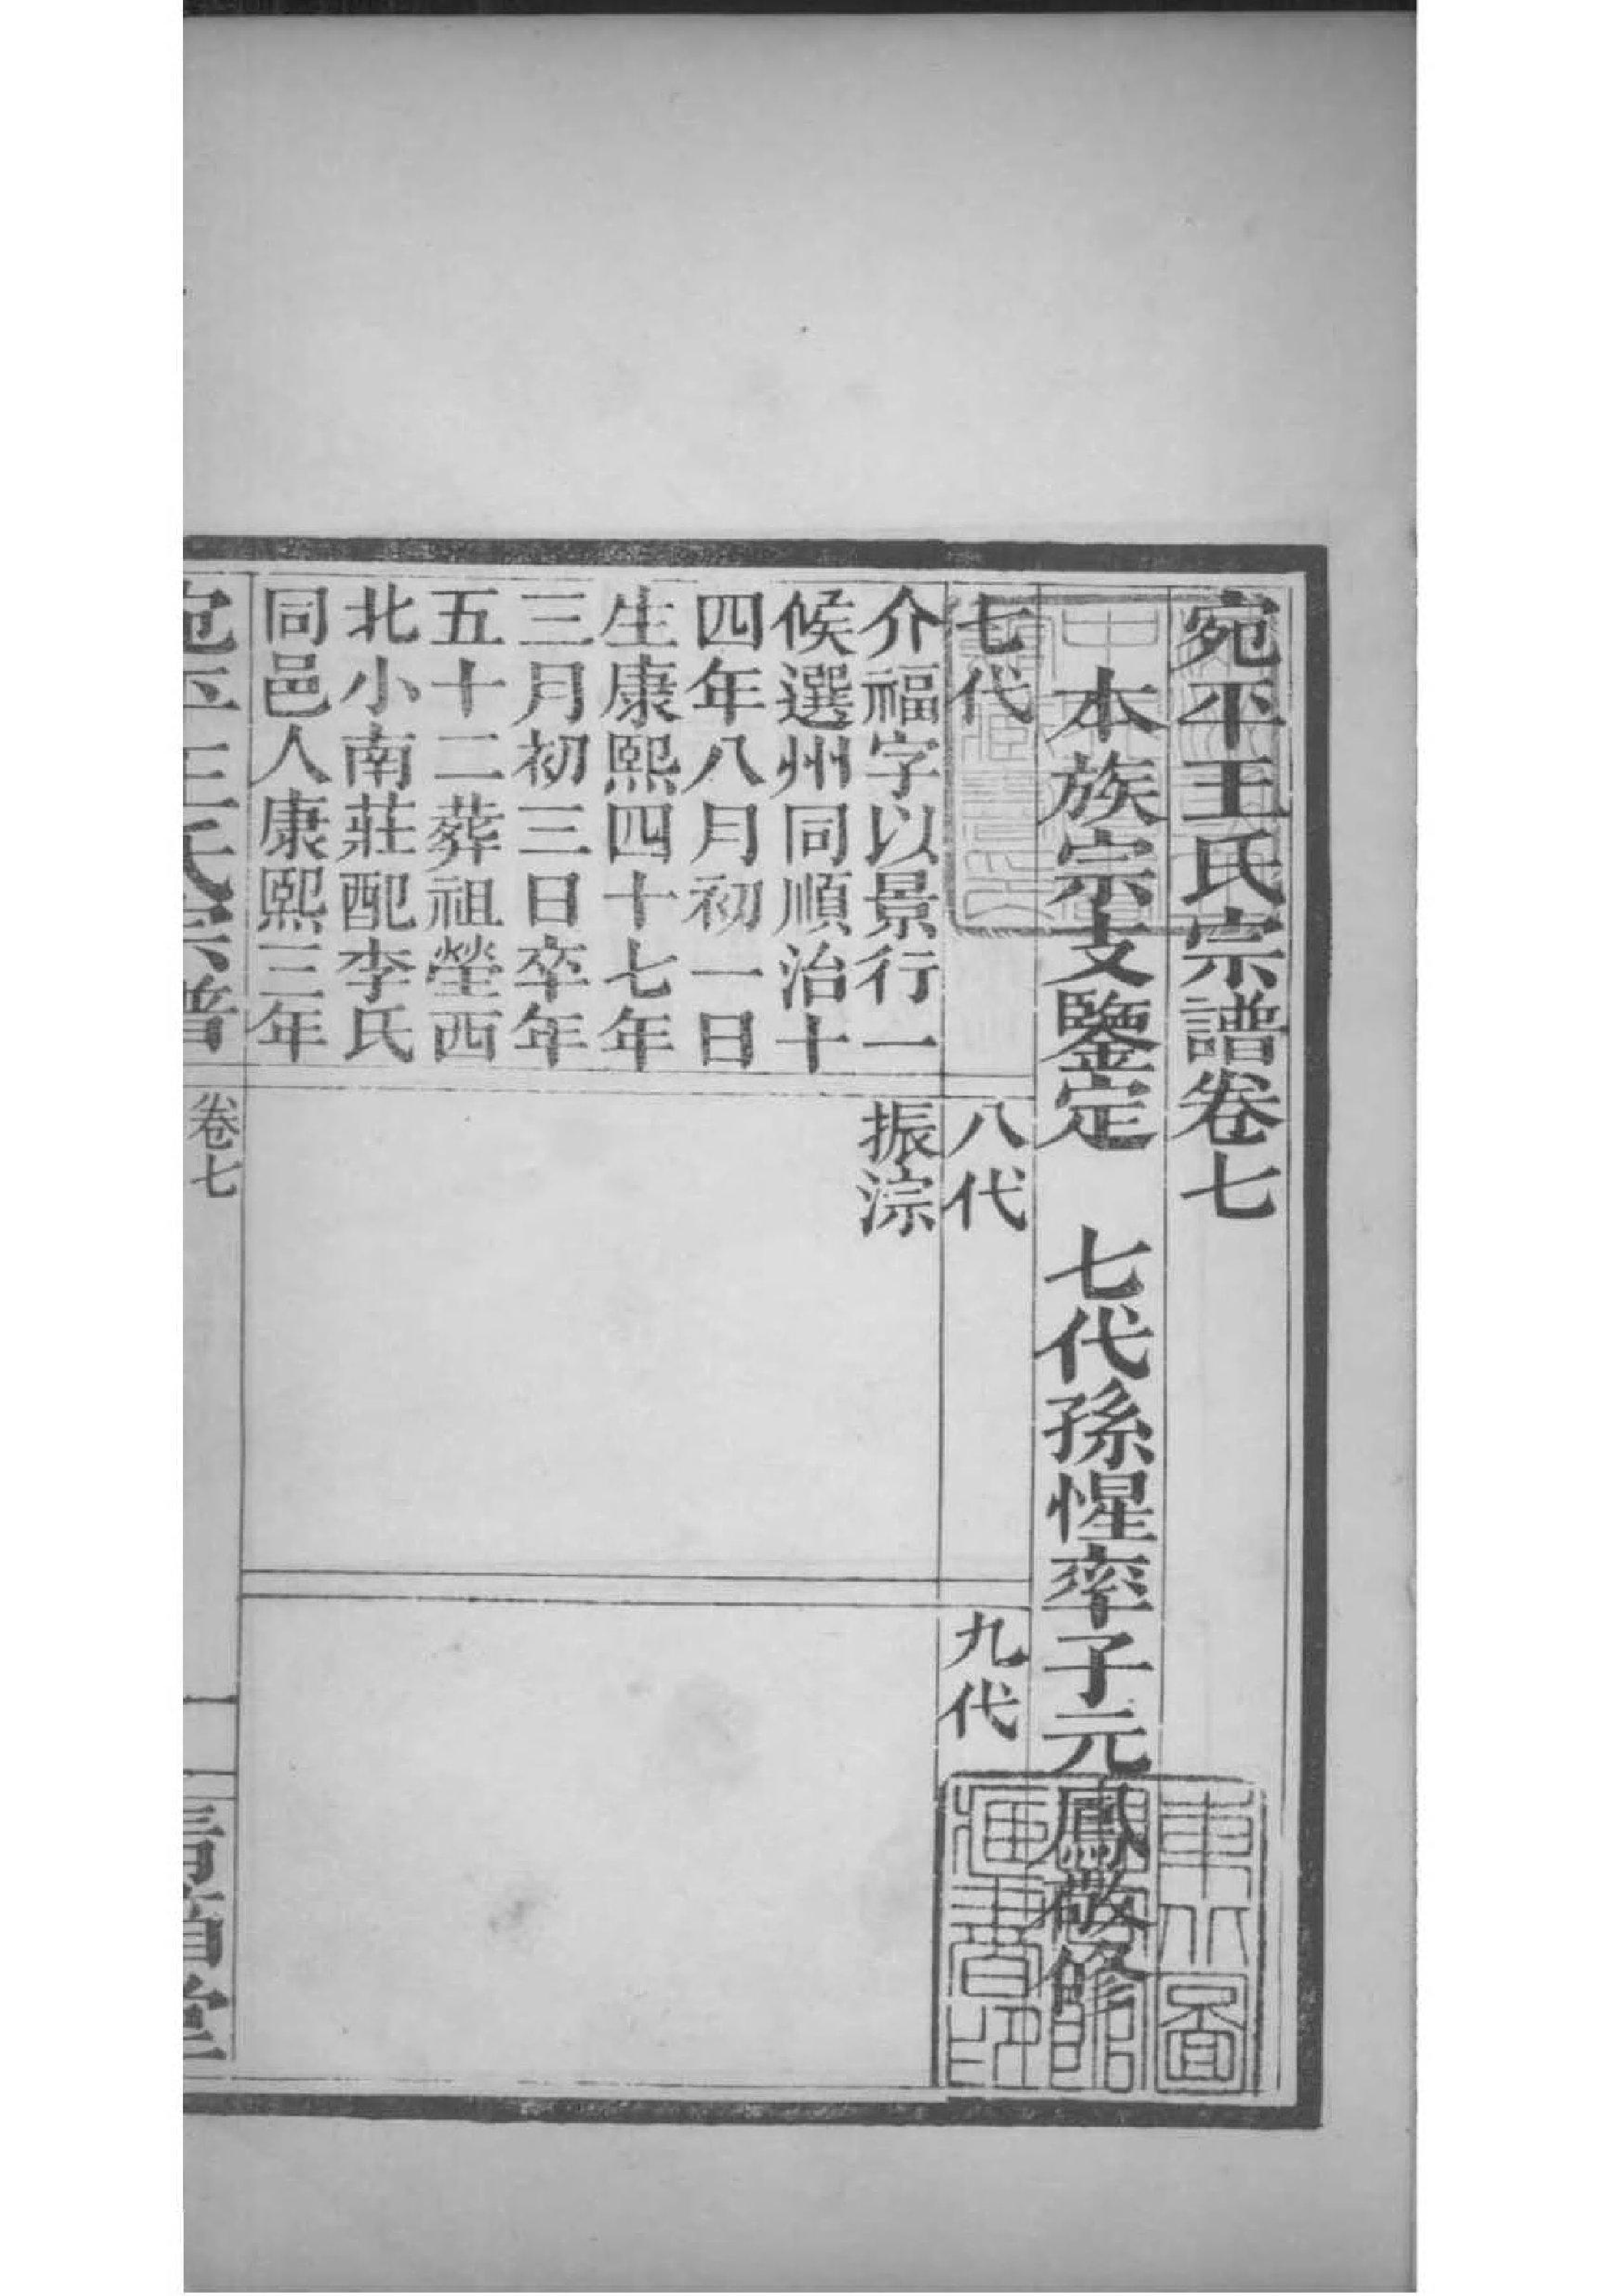 宛平王氏宗譜卷七
本族宗支鑒定　七代孫惺率子元鳳敬修
七代
介福字以景行一
候選州同順治十
四年八月初一日
生康熙四十七年
三月初三日卒年
五十二葬祖塋西
北小南莊配李氏
同邑人康熙三年
八代
振淙
九代
宛平王氏宗譜
卷七
一